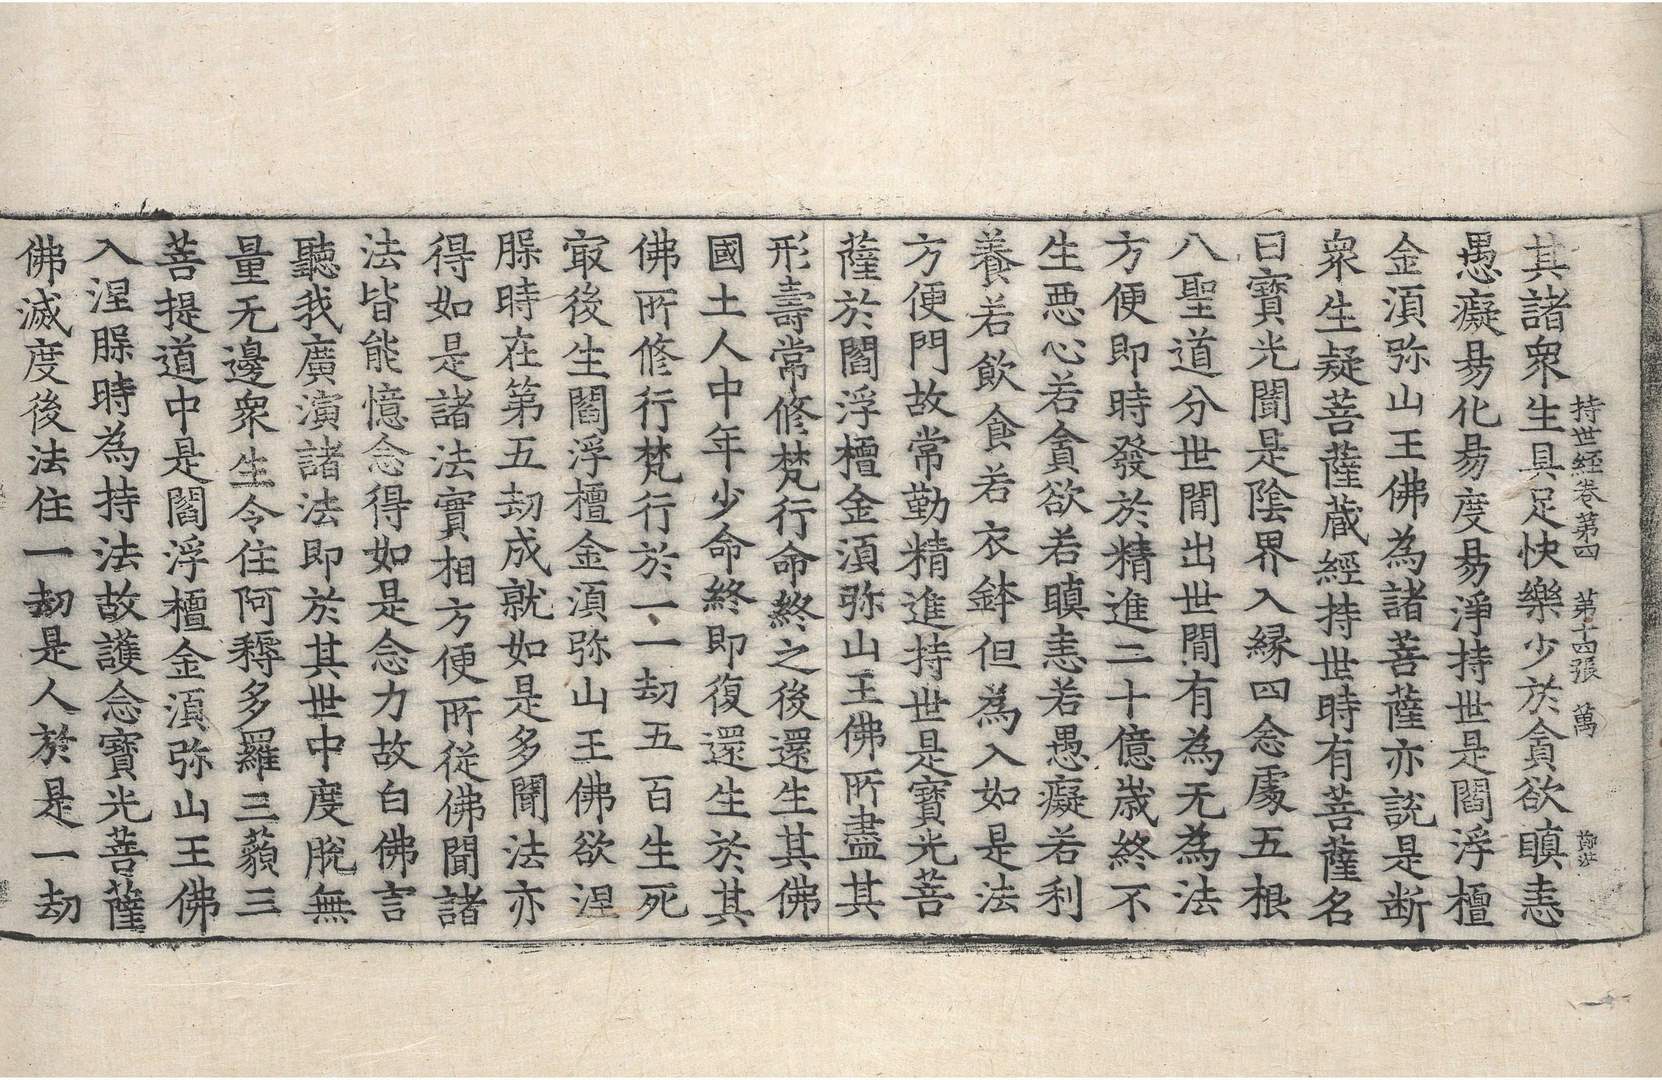 持世經卷第四　第十四張　萬
其諸衆生具足快樂少於貪欲瞋恚
愚癡易化易度易淨持世是閻浮檀
金湏弥山王佛為諸菩薩亦說是断
衆生疑菩薩蔵經持世時有菩薩名
曰寶光聞是陰界入縁四念處五根
八聖道分世間出世間有為无為法
方便即時發於精進二十億歳終不
生惡心若貪欲若瞋恚若愚癡若利
養若飲食若衣鉢但為入如是法
方便門故常勤精進持世是寶光菩
薩於閻浮檀金湏弥山王佛所盡其
形壽常修梵行命終之後還生其佛
國土人中年少命終即復還生於其
佛所修行梵行於一一劫五百生死
㝡後生閻浮檀金湏弥山王佛欲涅
槃時在第五劫成就如是多聞法亦
得如是諸法實相方便所從佛聞諸
法皆能憶念得如是念力故白佛言
聽我廣演諸法即於其世中度脫無
量无邊衆生令住阿耨多羅三藐三
菩提道中是閻浮檀金湏弥山王佛
入涅槃時為持法故護念寶光菩薩
佛滅度後法住一劫是人於是一劫